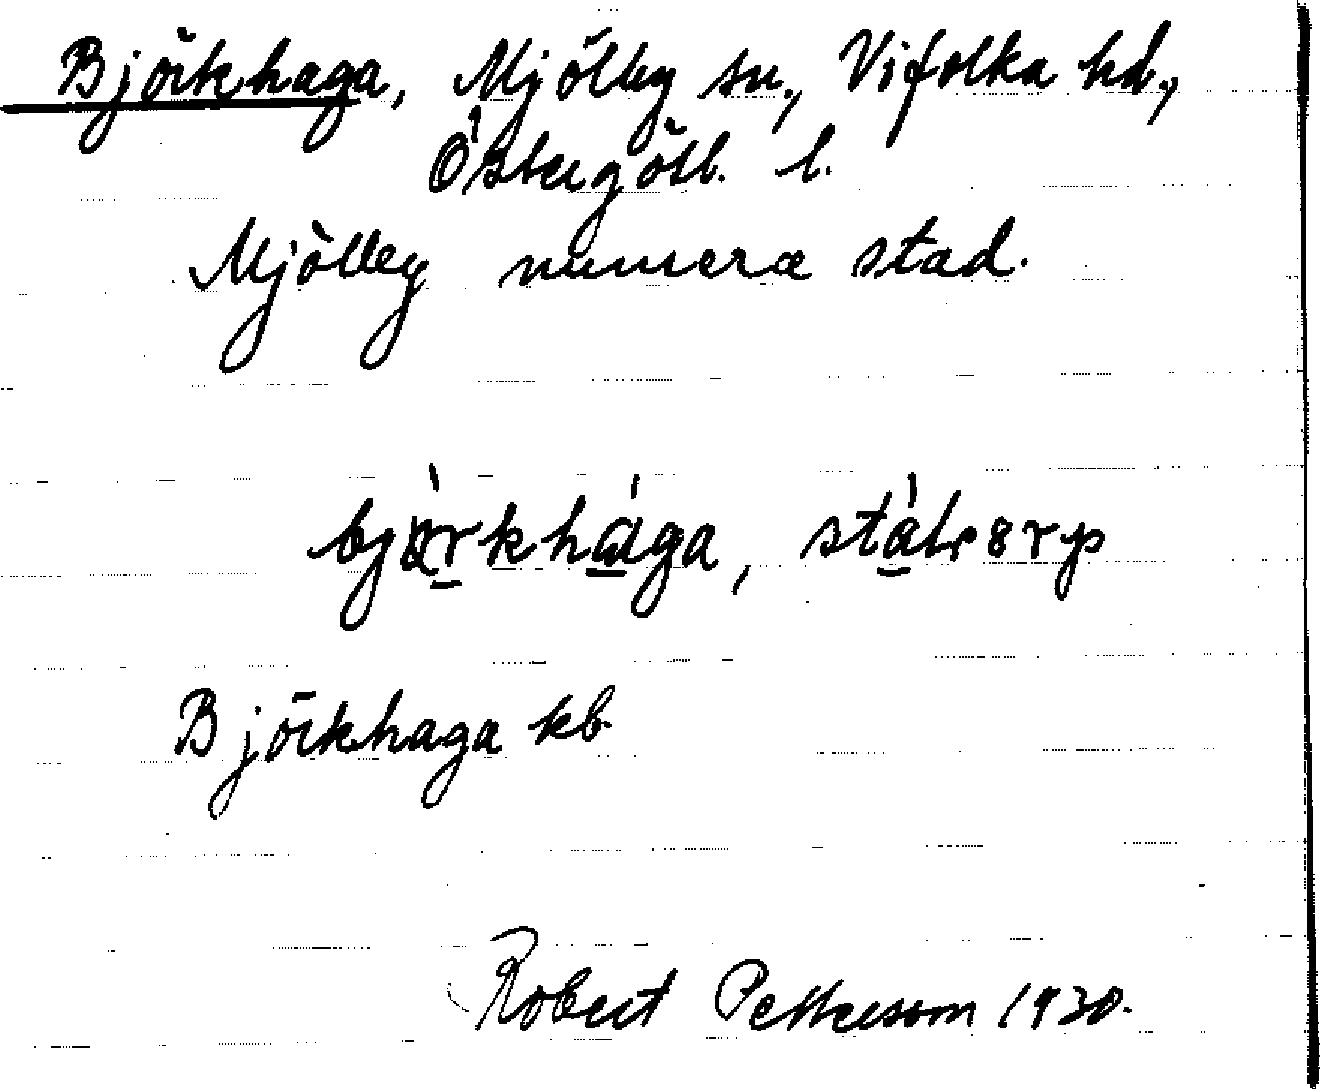 Björkhaga, Mjölby sn., Vifolka hd.,
Östergötl. l.
Mjölby numera stad.
bjàrkhága, stàlrsrp
Björkhaga kb
Robert Pettersson 1930.